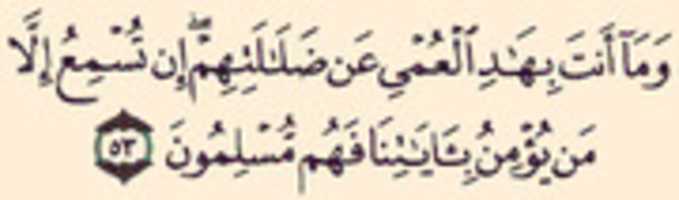 وَمَآ أَنتَ بِهَٰدِ ٱلْعُمْىِ عَن ضَلَٰلَتِهِمْ ۖ إِن تُسْمِعُ إِلَّا
مَن يُؤْمِنُ بِـَٔايَٰتِنَا فَهُم مُّسْلِمُونَ ٥٣